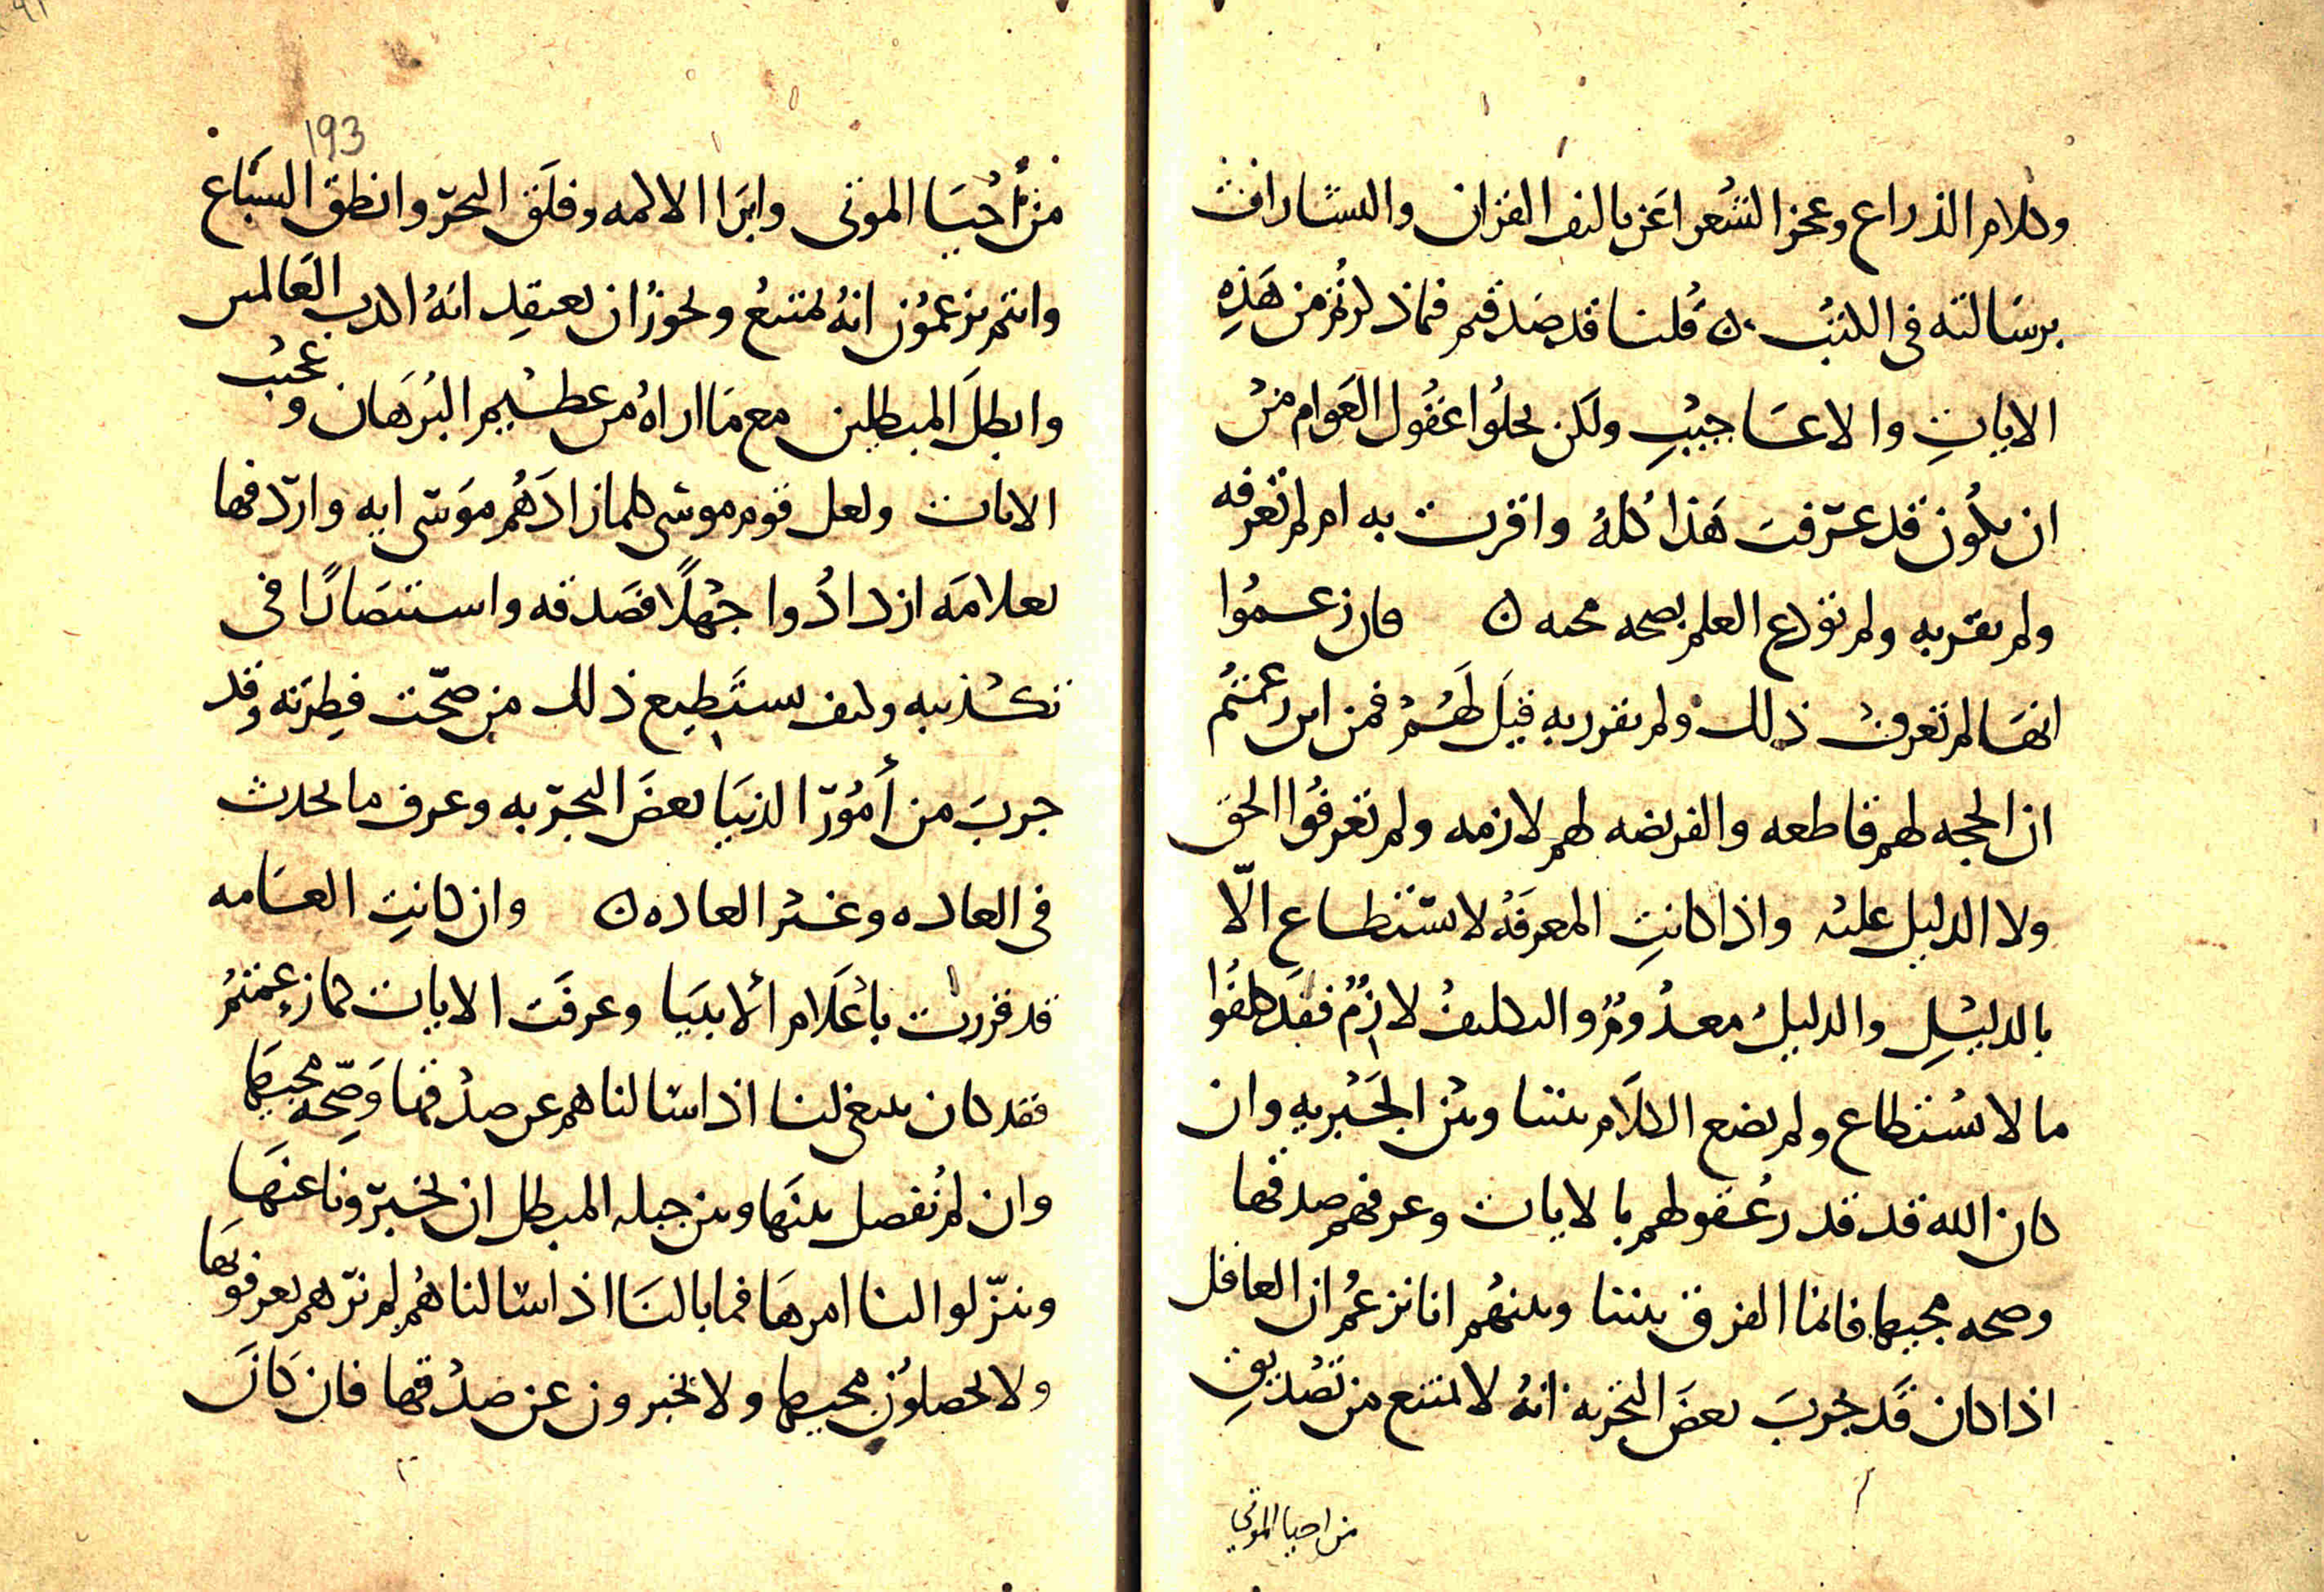 وكلام الذراع وعجز الشعرا عن تاليف القران والبشارات
برسالته في الكتب ٥ قلنا قد صدقتم فماذكرتم من هذه
الايات والاعاجيب ولكن يحلوا عقول العوام من
ان يكون قد عرفت هذا كله واقرت به ام لم تعرفه
ولم تقر به ولم تودع العلم بصحه مجيه ٥ فان زعموا
انها لم تعرف ذلك ولم تقرر به قيل لهم فمن اين زعمتم
ان الحجه لهم قاطعه والفريضه لهم لازمه ولم تعرفوا الحق
ولا الدليل عليه واذا كانت المعرفه لا تستطاع الا
بالدليل والدليل معدوم والتكليف لازم فقد كلفوا
ما لا يستطاع ولم يضع الكلام بيننا وبين الجبريه وان
كان الله قد قدر عقولهم بالايات وعرفهم صدقها
وصحه مجيها فانما الفرق بيننا وبينهم انا نزعم ان العاقل
اذا كان قد جرب بعض التجربه انه لا يمتنع من تصديق
من احيا الموتى
193
من احيا الموتى وابرا الاكمه وفلق البحر وانطق السباع
وانتم تزعمون انه يمتنع ويجوز ان يعتقد انه اكذب العالمين
وابطل المبطلين مع ما اراه من عظيم البرهان وعجيب
الايات ولعل قوم موسى كلما زادهم موسى ايه واردفها
بعلامه ازدادوا جهلا فصدقه واستنصارا في
تكذيبه وكيف يستطيع ذلك من صحت فطرته وقد
جرب من أمور الدنيا بعض التجربه وعرف ما يحدث
في العاده وغير العاده ٥ وان كانت العامه
قد قررت باعلام الانبيا وعرفت الايات كما زعمتم
فقد كان ينبغي لنا اذا سالناهم عن صدقها وصحه مجيها
وان لم نفصل بينها وبين حيله المبطل ان يخبرونا عنها
وينزلوا لنا امرها فما بالنا اذا سالناهم لم نرهم يعرفونها
ولا يحصلون مجيها ولا يخبرون عن صدقها فان كان